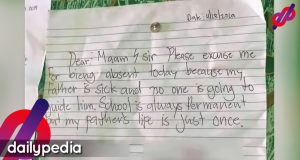 Dear: Maam / sir Please excuse me
for being absent today because my
father is sick and no one is going to
guide him. School is always permanent
but my father's life is just once.
dailypedia